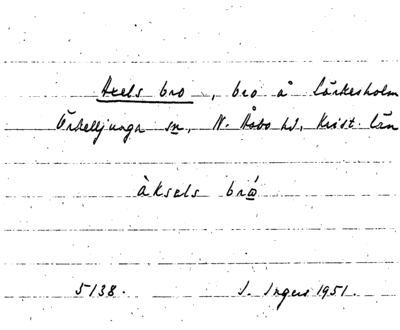 Axels bro, bro å Lärkesholm
Örkelljunga sn, N. Åsbo hd, Krist. län
àksals brώ
5138. I. Ingers 1951.